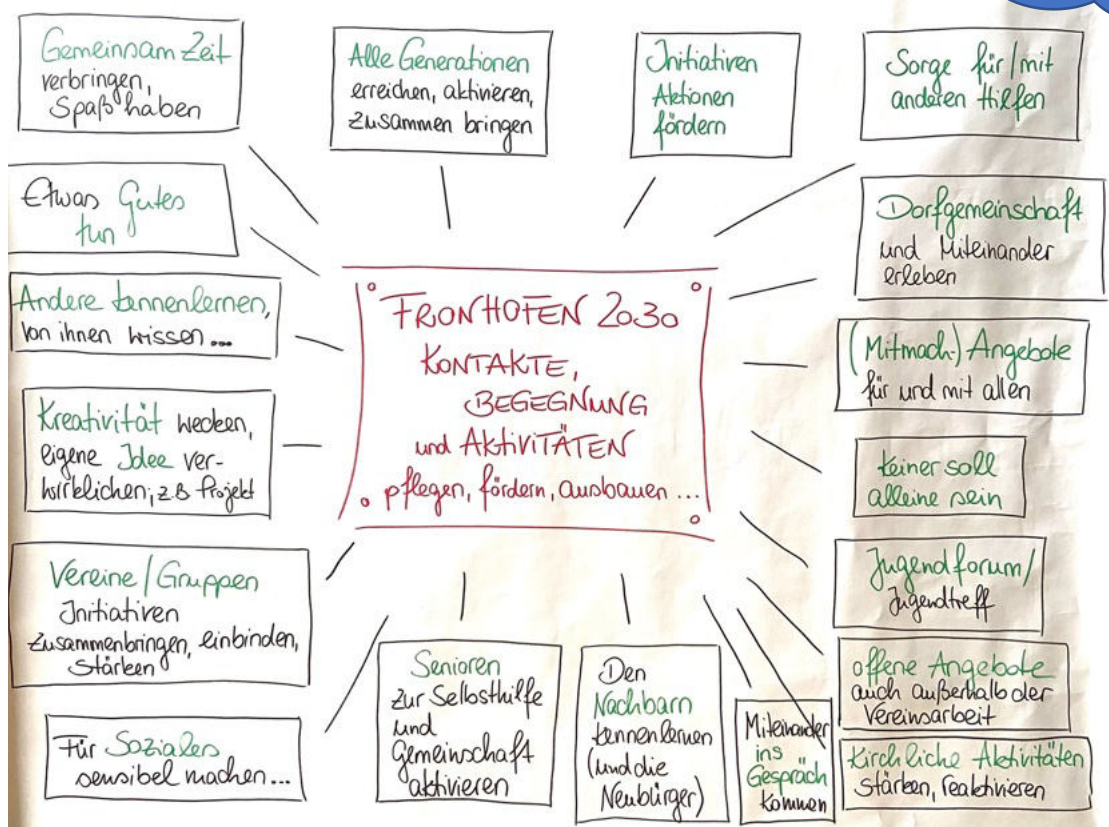 Gemeinsam Zeit
verbringen,
Spaß haben
Alle Generationen
erreichen, aktivieren,
zusammen bringen
Initiativen
Aktionen
fördern
Sorge für/mit
anderen Hilfen
Etwas Gutes
tun
Dorfgemeinschaft
und Miteinander
erleben
Andere kennenlernen,
von ihnen wissen...
FRONHOFEN 2030
KONTAKTE,
BEGEGNUNG
und AKTIVITÄTEN
pflegen, fördern, ausbauen...
(Mitmach-) Angebote
für und mit allen
Kreativität wecken,
eigene Idee ver-
wirklichen; z.B Projekt
Keiner soll
alleine sein
Vereine/Gruppen
Initiativen
zusammenbringen, einbinden,
stärken
Jugendforum/
Jugendtreff
Für Soziales
sensibel machen...
Senioren
zur Selbsthilfe
und
Gemeinschaft
aktivieren
Den
Nachbarn
kennenlernen
(und die
Neubürger)
Miteinander
ins
Gespräch
kommen
offene Angebote
auch außerhalb der
Vereinsarbeit
Kirchliche Aktivitäten
stärken, reaktivieren